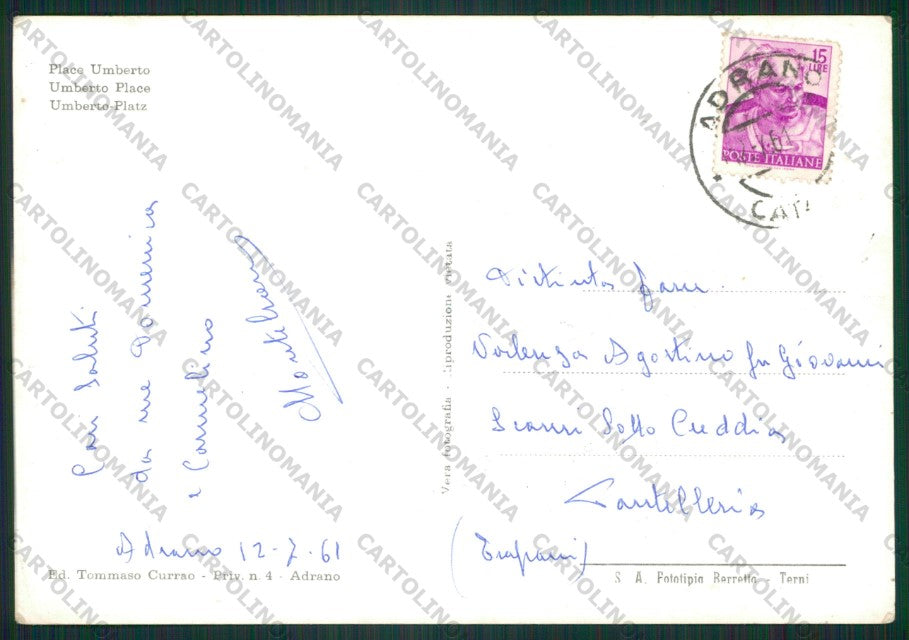 Place Umberto
Umberto Place
Umberto-Platz
15
LIRE
POSTE ITALIANE
ADRANO
CATA
Cari Saluti
da me Domenica
e Carmelino
Adrano 12-7-61
Ed. Tommaso Currao - Priv. n. 4 - Adrano
Vera fotografia - riproduzione vietata
Distinta fam.
Valenza Agostino fu Giovanni
Sotto Cuddia
Pantelleria
(Trapani)
S. A. Fototipia Berretta - Terni
CARTOLINOMANIA